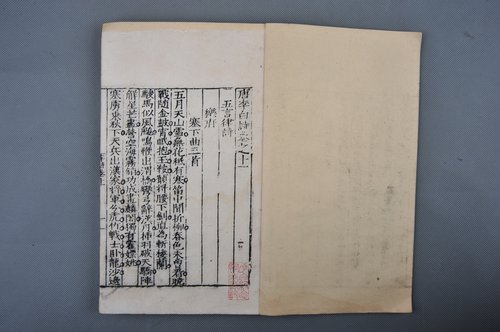 唐李白詩卷之十一
五言律詩
樂府
塞下曲六首
五月天山雪無花祗有寒笛中聞折柳春色未曾看曉
戰隨金鼓宵眠抱玉鞍願將腰下劍直為斬樓蘭
駿馬似風飇鳴鞭出渭橋彎弓辭漢月插羽破天驕陣
解星芒盡營空海霧銷功成畫麟閣獨有霍嫖姚
塞虜乘秋下天兵出漢家將軍分虎竹戰士臥龍沙邊